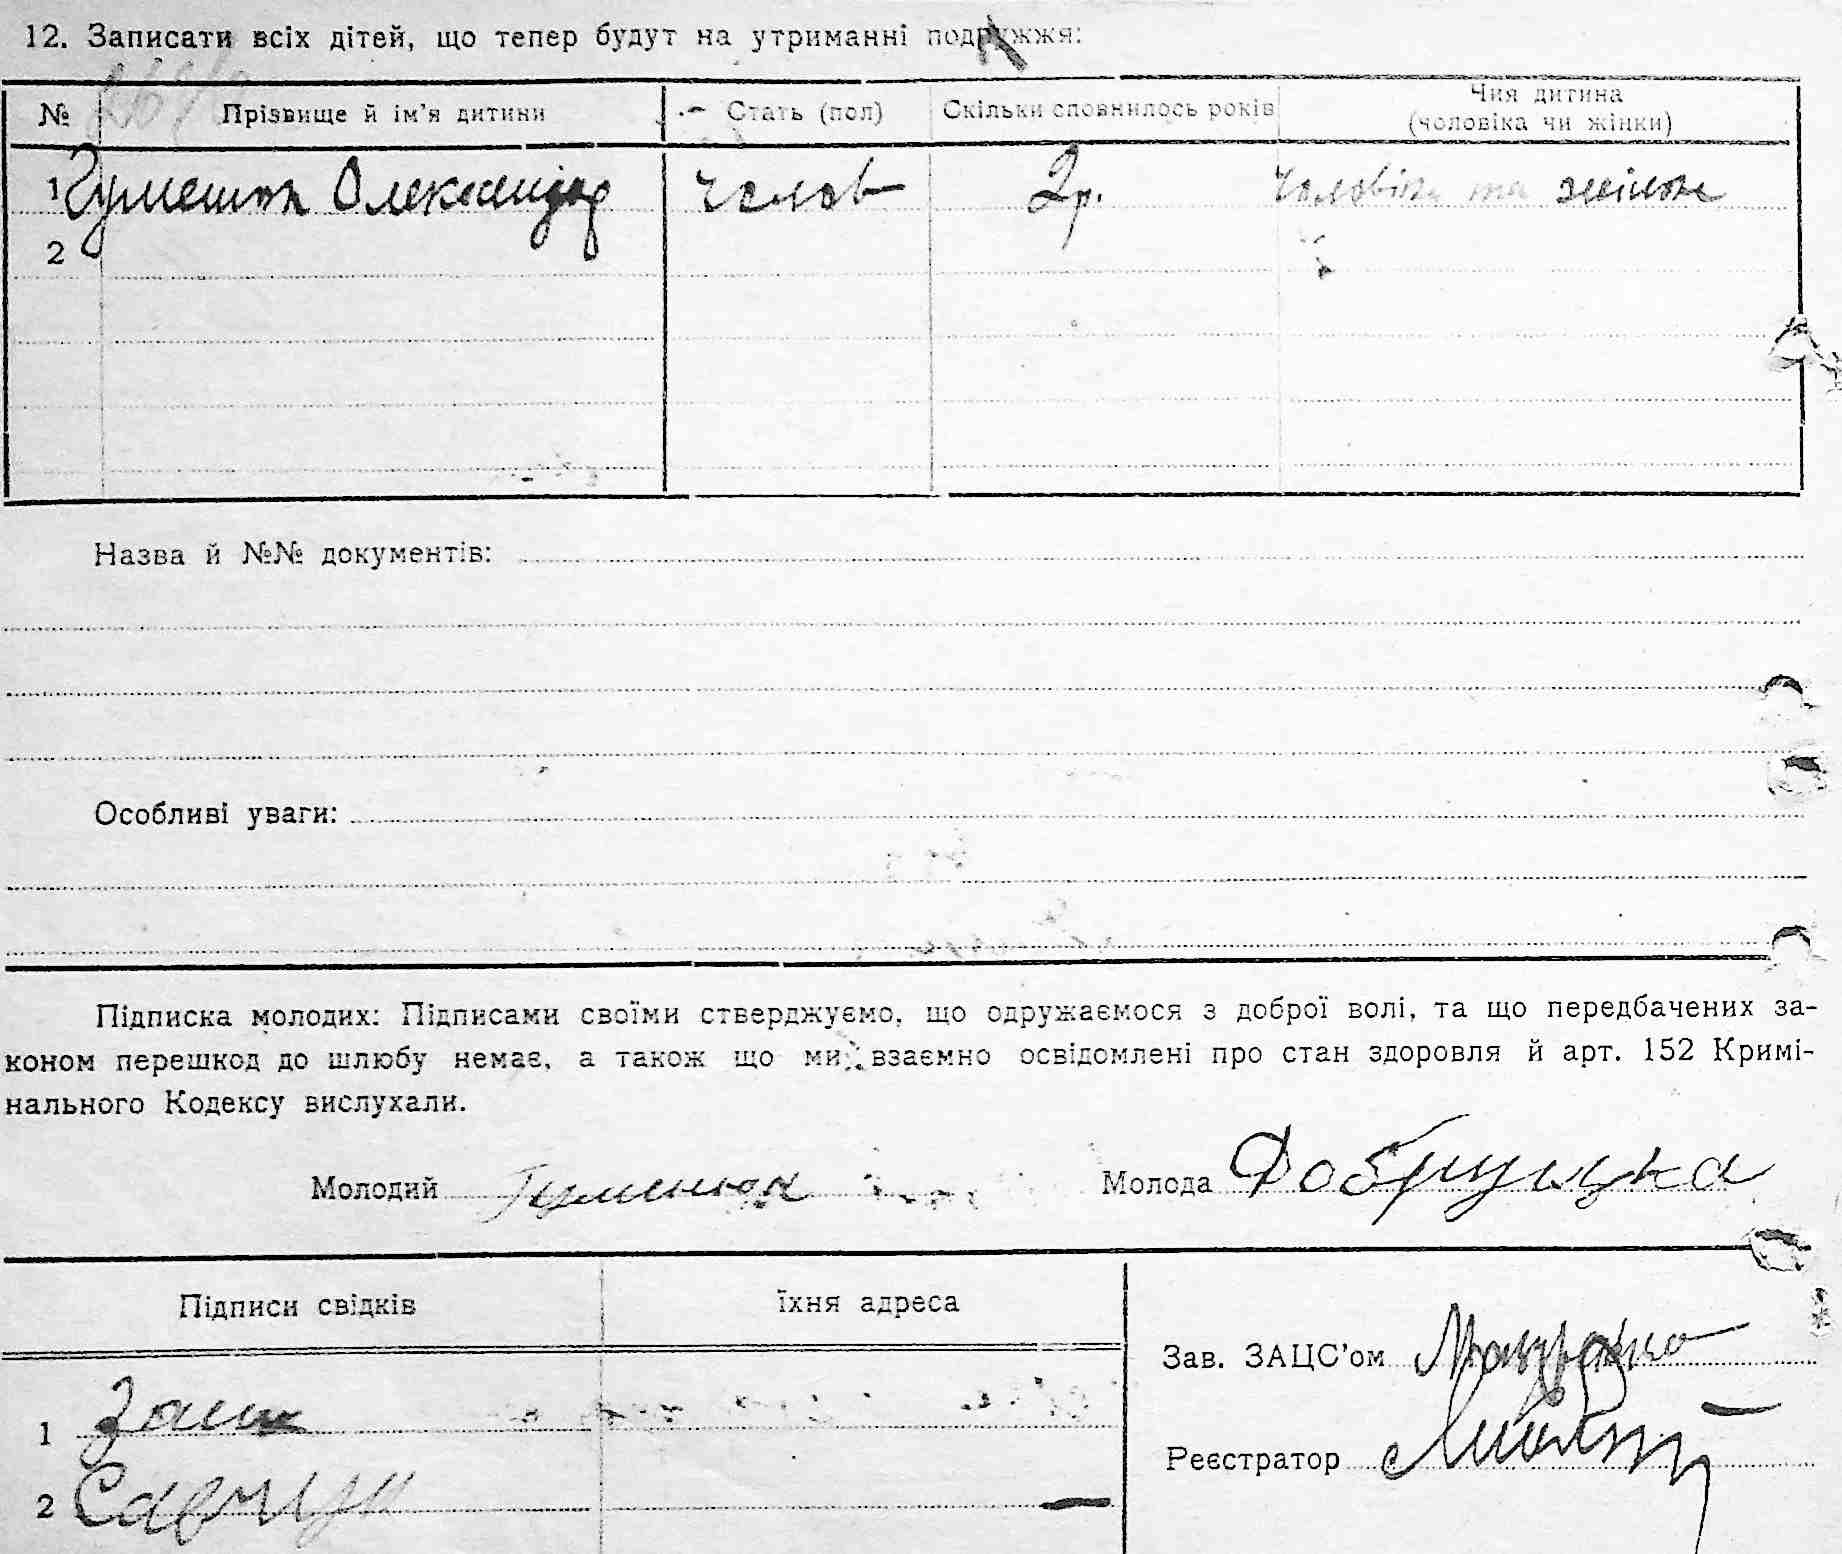 12. Записати всіх дітей, що тепер будут на утриманні подружжя:
№ Прізвище й ім'я дитини Стать (пол) Скільки сповнилось років Чия дитина (чоловіка чи жінки)
1 Гуменюк Олександр чолов 2р. Чоловіка та жінки
2
Назва й №№ документів:
Особливі уваги:
Підписка молодих: Підписами своїми стверджуємо, що одружаємося з доброї волі, та що передбачених за-
коном перешкод до шлюбу немає, а також що ми взаємно освідомлені про стан здоровля й арт. 152 Кримі-
нального Кодексу вислухали.
Молодий Гуменюк Молода Добруцька
Підписи свідків їхня адреса
Зав. ЗАЦС'ом
1
Реєстратор
2 Савчук